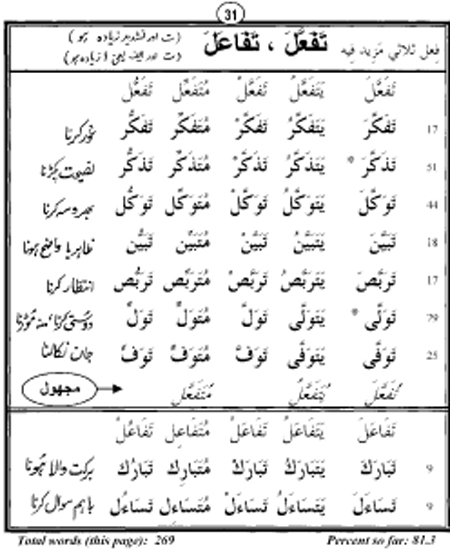 31
فعل ثلاثي مزيد فيه تَفَعَّلَ ، تَفَاعَلَ (ت اور تشدید زیادہ ہو)
(ت اور الف یعنی ا زیادہ ہو)
تَفَعَّلَ يَتَفَعَّلُ تَفَعَّلْ مُتَفَعِّل تَفَعُّل
17 تَفَكَّرَ يَتَفَكَّرُ تَفَكَّرْ مُتَفَكِّر تَفَكُّر غور کرنا
51 تَذَكَّرَ * يَتَذَكَّرُ تَذَكَّرْ مُتَذَكِّر تَذَكُّر نصیحت پکڑنا
44 تَوَكَّلَ يَتَوَكَّلُ تَوَكَّلْ مُتَوَكِّل تَوَكُّل بھروسہ کرنا
18 تَبَيَّنَ يَتَبَيَّنُ تَبَيَّنْ مُتَبَيِّن تَبَيُّن ظاہر یا واضح ہونا
17 تَرَبَّصَ يَتَرَبَّصُ تَرَبَّصْ مُتَرَبِّص تَرَبُّص انتظار کرنا
79 تَوَلَّى * يَتَوَلَّى تَوَلَّ مُتَوَلٍّ تَوَلٍّ دوستی کرنا، منہ موڑنا
25 تَوَفَّى يَتَوَفَّى تَوَفَّ مُتَوَفٍّ تَوَفٍّ جان نکالنا
تُفُعِّلَ يُتَفَعَّلُ مُتَفَعَّل → مجهول
تَفَاعَلَ يَتَفَاعَلُ تَفَاعَلْ مُتَفَاعِل تَفَاعُلْ
9 تَبَارَكَ يَتَبَارَكُ تَبَارَكْ مُتَبَارِك تَبَارُك برکت والا ہونا
9 تَسَاءَلَ يَتَسَاءَلُ تَسَاءَلْ مُتَسَاءِل تَسَاءُل باہم سوال کرنا
Total words (this page): 269 Percent so far: 81.3